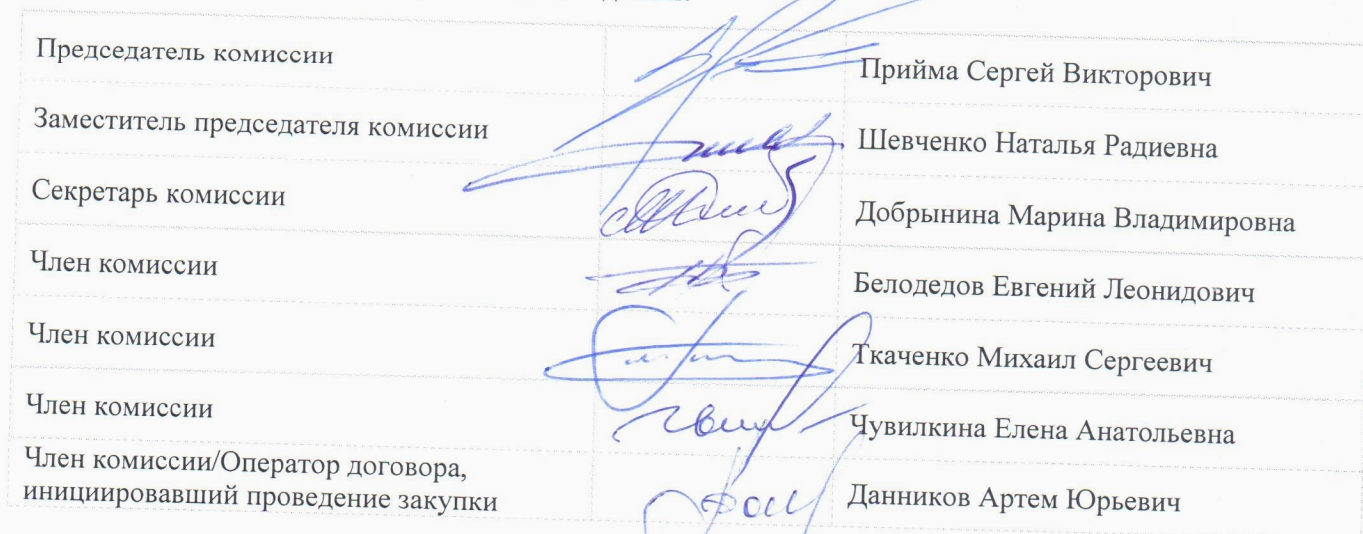 Председатель комиссии Прийма Сергей Викторович
Заместитель председателя комиссии Шевченко Наталья Радиевна
Секретарь комиссии Добрынина Марина Владимировна
Член комиссии Белодедов Евгений Леонидович
Член комиссии Ткаченко Михаил Сергеевич
Член комиссии Чувилкина Елена Анатольевна
Член комиссии/Оператор договора,
инициировавший проведение закупки Данников Артем Юрьевич